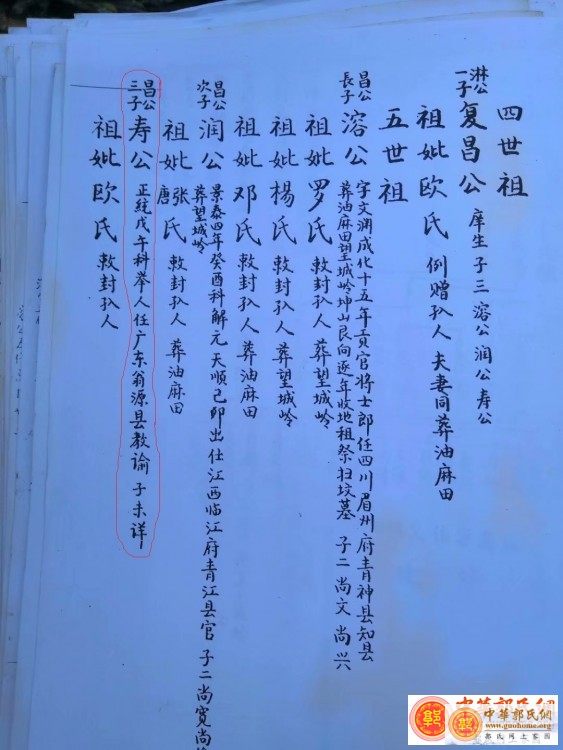 四世祖
淋公一子 复昌公 庠生 子三 溶公 润公 寿公
祖妣欧氏 例赠孙人 夫妻同葬油麻田
五世祖
昌公長子 溶公 字文渊成化十五年贡官将士郎任四川眉州府青神县知县
葬油麻田望城岭坤山艮向逐年收地租祭扫坟墓 子二 尚文 尚兴
祖妣罗氏 敕封孙人 葬望城岭
祖妣楊氏 敕封孙人 葬望城岭
祖妣邓氏 敕封孙人 葬油麻田
昌公次子 润公 景泰四年癸酉科解元 天順己卯出仕江西临江府青江县官 子二尚宽尚
葬望城岭
祖妣张唐氏 敕封孙人 葬油麻田
昌公三子 寿公 正統戊午科举人任广东翁源县教谕 子未详
祖妣欧氏 敕封孙人
中華郭氏網
www.guohome.org
郭氏网上家园